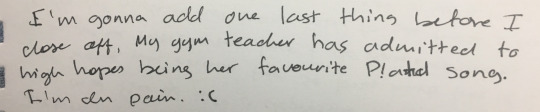 I'm gonna add one last thing before I
close off. My gym teacher has admitted to
high hopes being her favourite P!atd song.
I'm in pain. :c